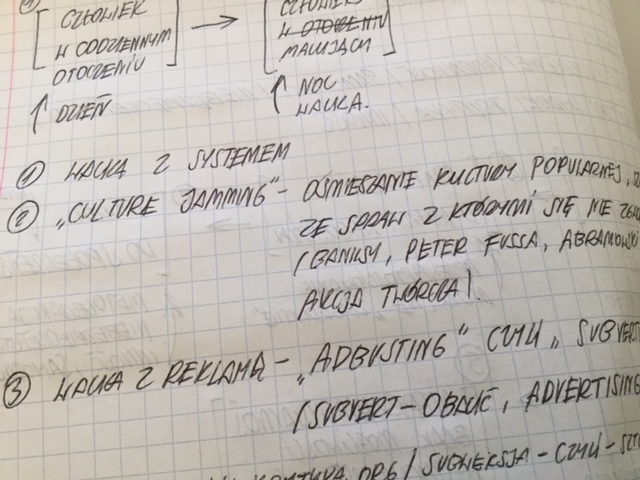 CZŁOWIEK
W CODZIENNYM
OTOCZENIU
CZŁOWIEK
W OTOCZENIU
MALUJĄCY
DZIEŃ
NOC
WALKA.
① WALKA Z SYSTEMEM
② „CULTURE JAMMING" - OŚMIESZANIE KULTURY POPULARNEJ,
ZE SPRAW Z KTÓRYMI SIĘ NIE
(BANKSY, PETER FUSSA, ABRAMOWSKI
AKCJA TWÓRCZA).
③ WALKA Z REKLAMĄ - „ADBUSTING" CZYLI „SUBVERT
(SUBVERT - OBALIĆ, ADVERTISING
SUBWERSJA - CZYLI -